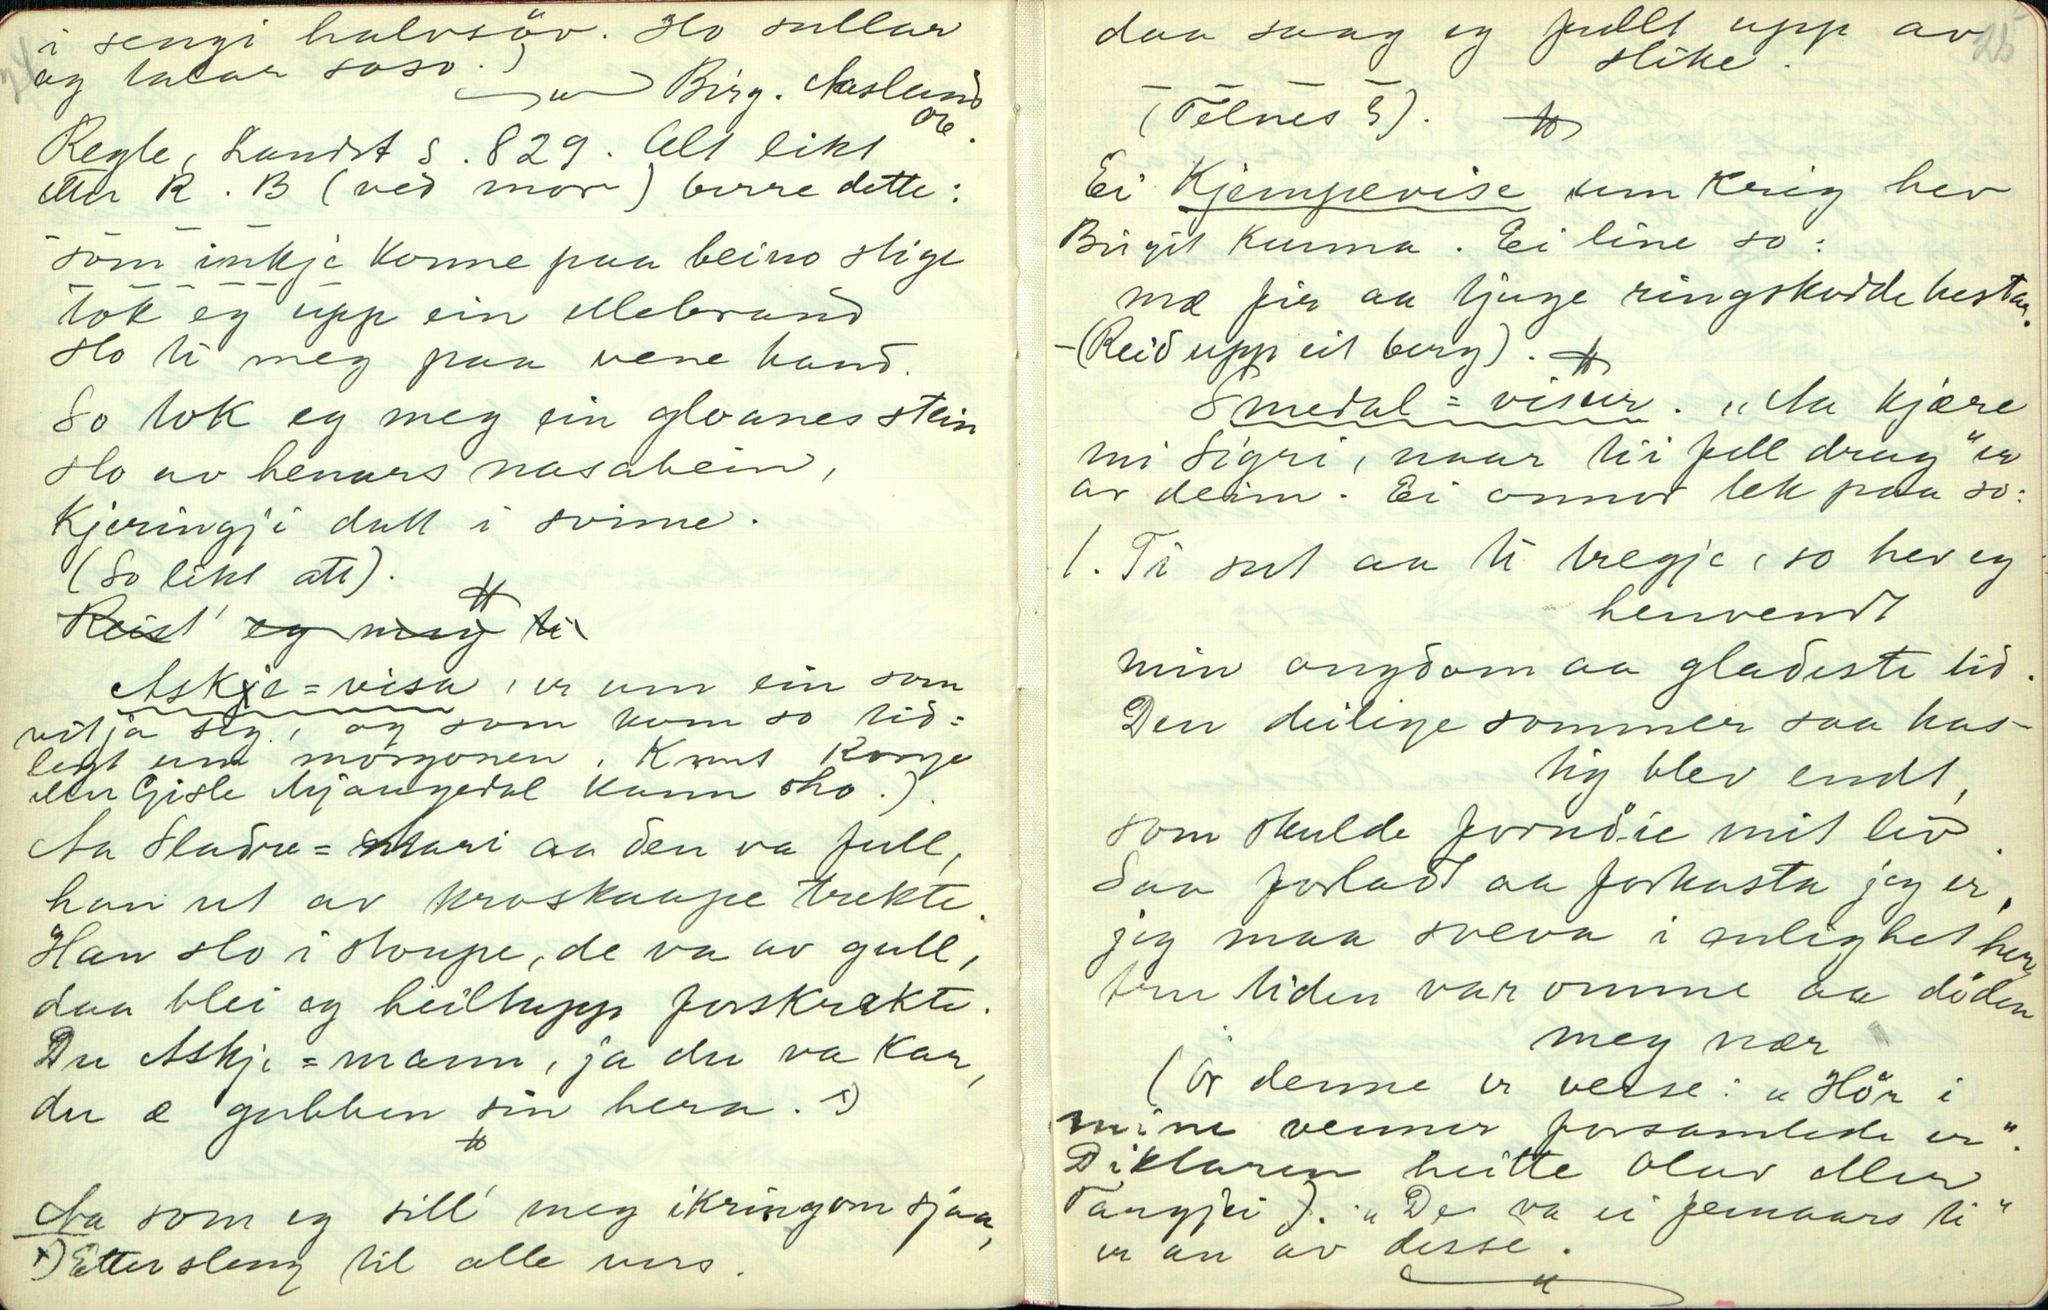 i sengi halvsöv. Ho sullar
og talar soso.)
Birg. Aasland
Ose.
Regle, Landst s. 829. Alt likt
etter R. B (ved mor) berre dette:
som inkje konne paa beino stige
tok eg upp ein ellebrand
slo ti meg paa vene hand.
So tok eg meg ein gloanes stein
slo av henars nasabein,
Kjeringji datt i svime.
(So likt att).
Reist' eg meg ti
Askje=visa, er um ein som
vitja seg, og som kom so tid=
legt um morgonen. Knut Rorge
eller Gisle Mjaugedal kann sho.).
Aa Sladre=mari aa den va full,
han ut av kroskaape trekte.
Han slo i stoupe, de va av gull,
daa blei eg heiltupp forskrækte.
Du Askje=mann, ja du va kar,
du æ gubben sin hera. x)
Aa som eg sill' meg ikringom sjaa,
x) Ettersleng til alle vers.
25
daa saag eg fullt upp av
slike.
(Felnes?).
Ei Kjempevise um krig hev
Birgit kunna. Ei line so:
mæ fir aa tjuge ringskodde hestar.
-(Reid upp eit berg).
Smedal=visur. "Aa kjære
mi Sigri, naar ti i fell drag" er
av deim. Ei onnor tek paa so:
1. Ti sut aa ti tregje, so hev eg
henvendt
min ongdom aa gladeste tid.
Den deilige sommer saa has-
tig blev endt,
som skulde fornöie mit liv.
Saa forladt aa forkasta jeg er,
jeg maa sveva i enlighet her
tru tiden var omme aa döden
meg nær
(Or denne er verse: "Hör i
mine venner forsamlede er".
Diktaren heitte Olav eller
Targjei). "De va ei femaars ti"
er an av desse.